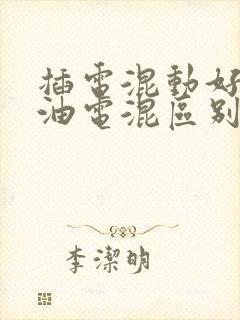 插電混動好
油電混區别
李潔明